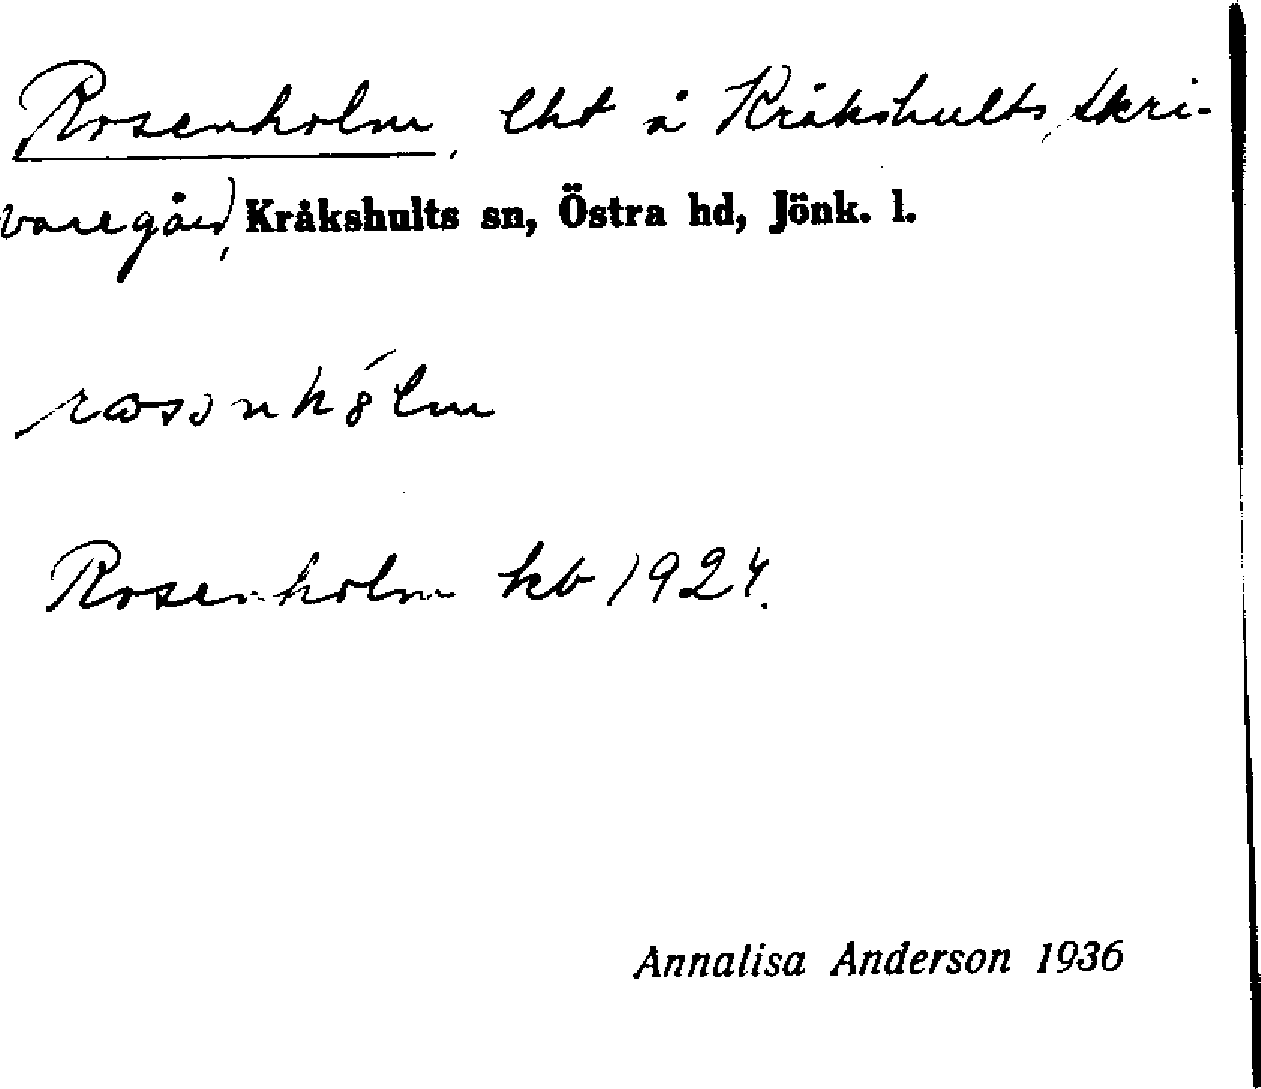 Rosenholm, lht å Kråkshults skri-
varegård, Kråkshults sn, Östra hd, Jönk. l.
Rosenholm kb 1924.
Annalisa Anderson 1936